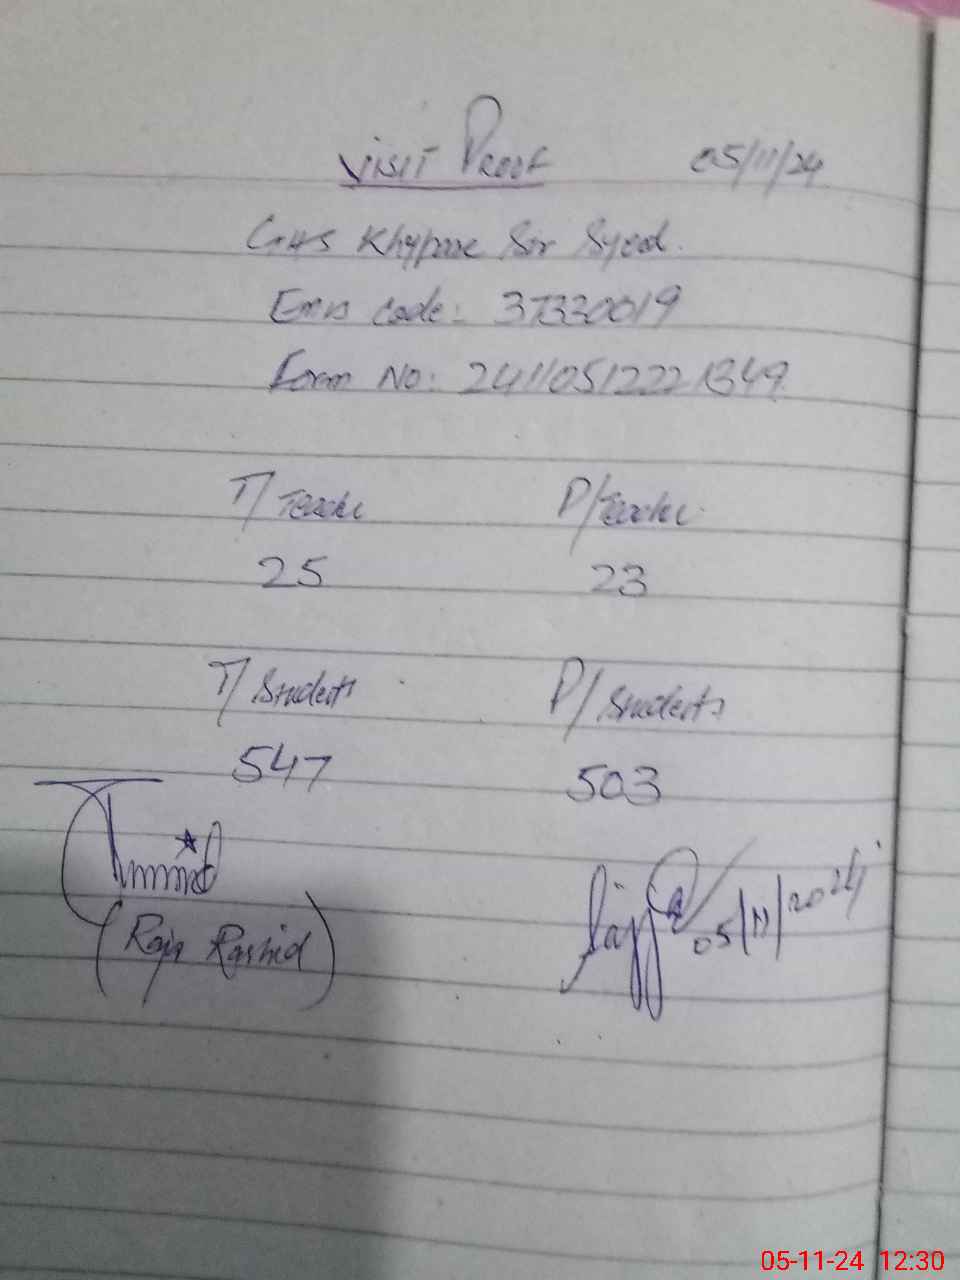 VISIT PROOF 05/11/24
GHS Sir Syed.
Emis code: 37330019
Form No: 24110512221349
T/ Teache P/ teache
25 23
T/ Students P/ Students
547 503
(Raja Rashid) 05/11/2024
05-11-24 12:30